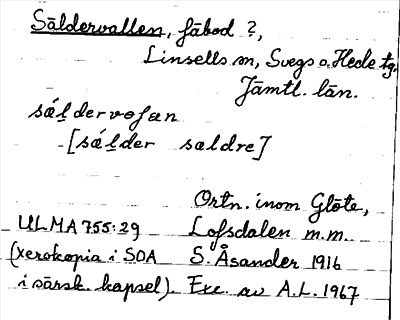 Säldervallen, fäbod ?,
Linsells sn, Svegs o. Hede tg,
Jämtl. län.
[sáḻder saldre]
Ortn. inom Glöte,
ULMA 755:29 Lofsdalen m.m.
(xerokopia i SOA S. Åsander 1916
i särsk. kapsel). Exc. av A.L. 1967